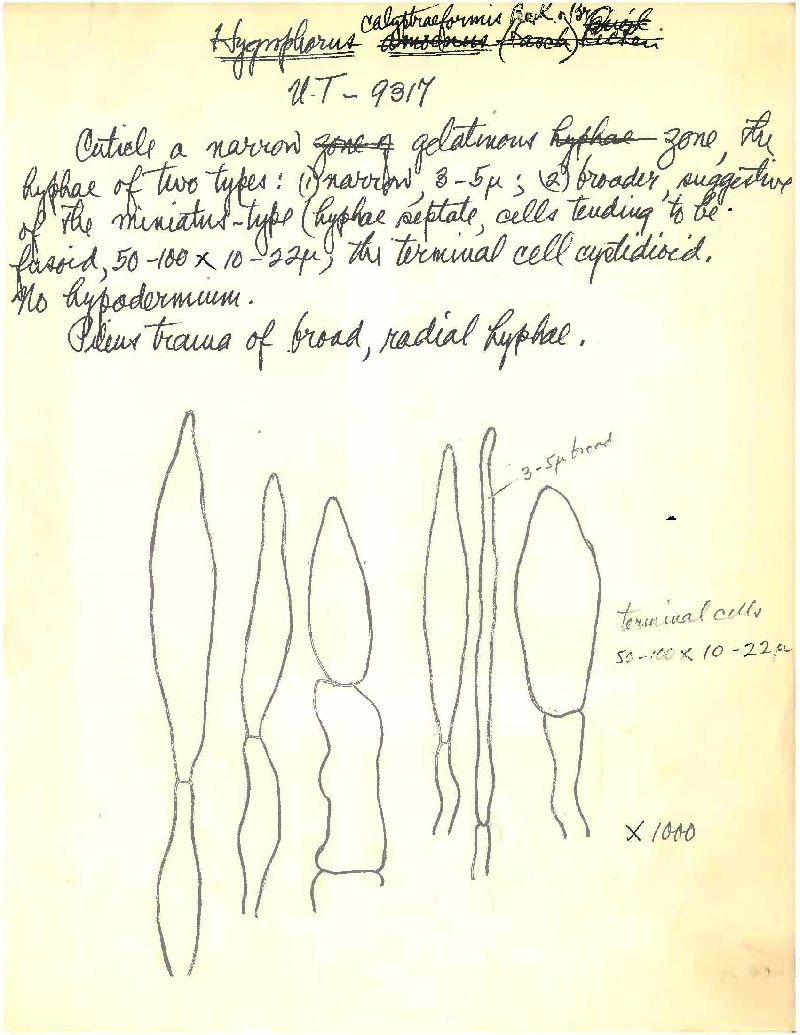 calyptraeformis Berk. & Br.
Hygrophorus amoenus (Lasch) Quél.
U-T - 9317
Cuticle a narrow zone of gelatinous hyphae zone, the
hyphae of two types: (1) narrow, 3-5µ; (2) broader, suggestive
of the miniatus-type (hyphae septate, cells tending to be
fusoid, 50-100 x 10-22µ, the terminal cell cystidioid.
No hypodermium.
Pileus trama of broad, radial hyphae.
3-5µ broad
terminal cells
50-100 x 10-22µ
X 1000